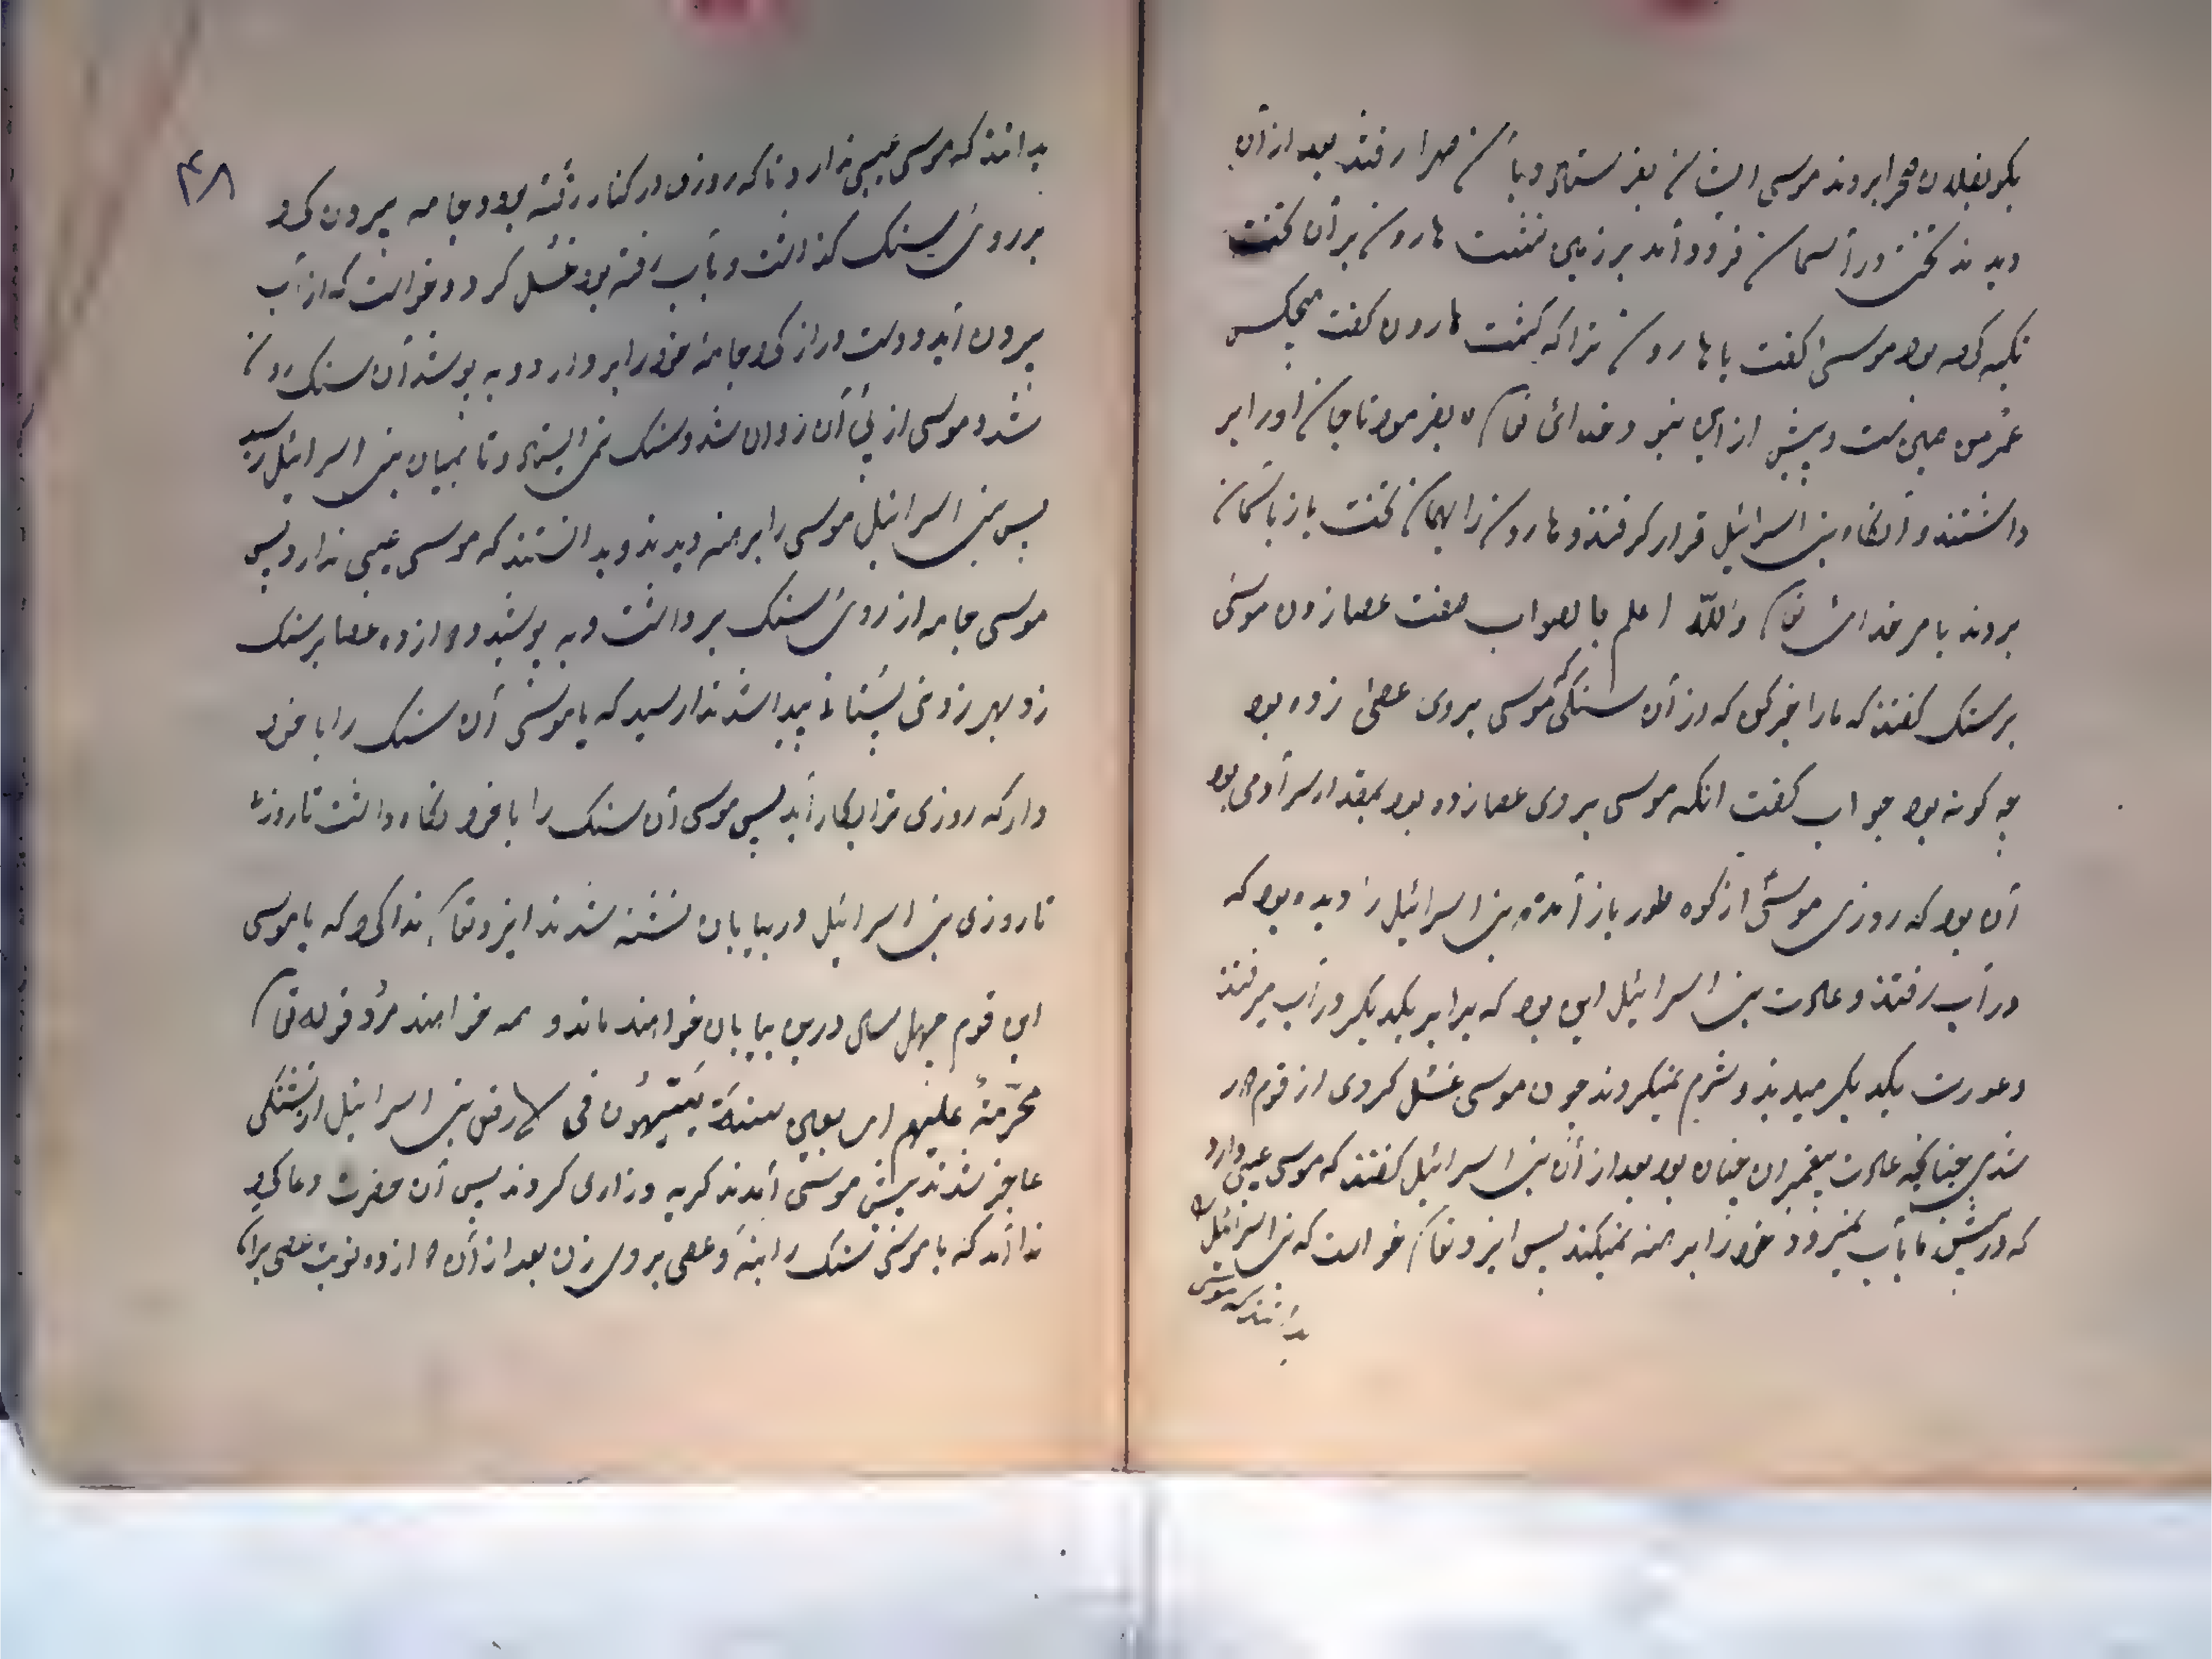 بکو بفلان صحرا بروند موسی ایشان بفرستاد و بآن صحرا رفتند بعد از آن
دیدند تختی در آسمان فرود آمد بر زمین نشست هارون بر آن تخت
تکیه کرده بود موسی گفت یا هارون ترا که کشت هارون گفت هیچکس
عمر من همین ست و پیش ازین نبود خدائ تعا بفرمود تا جان او را بر
داشتند و آنگاه بنی اسرائیل قرار گرفتند و هارون را بهمان تخت باز بآسمان
بردند بامر خدای تعا والله اعلم بالصواب صفت عصا زدن موسی
بر سنک گفتند که مارا خبر کن که در آن سنگی که موسی بروی عصی زده بود
چه گونه بود جواب گفت انکه موسی بروی عصا زده بود بمقدار سر آدمی بود
آن بود که روزی موسی از کوه طور باز آمده بنی اسرائیل را دیده بود که
در آب رفتند و عادت بنی اسرائیل این بود که برابر یکدیکر در آب میرفتند
و عورت یکدیکر میدیدند و شرم نمیکردند چون موسی غسل کردی از قوم دور
شدی چنانچه عادت پیغمبران چنان بود بعد از آن بنی اسرائیل گفتند که موسی عیبی دارد
که در پیش ما بآب نمیرود خود را برهنه نمیکند پس ایزد تعا خواست که بنی اسرائیل
بدانند که موسی
۴۸
بدانند که موسی عیبی ندارد تا که روزی در کنار رفته بود و جامه بیرون کرد
بر روی سنک گذاشت و بآب رفته بود غسل کرد و خواست که از آب
بیرون آید و دست دراز کرد جامه خود را بردارد و به پوشد آن سنک روان
شد و موسی از پی آن روان شد و سنک نمی ایستاد و تا بمیان بنی اسرائیل رسید
پس بنی اسرائیل موسی را برهنه دیدند و بدانستند که موسی عیبی ندارد پس
موسی جامه از روی سنک برداشت و به پوشید و دوازده عصا بر سنک
زد بهر زدنی نشانه پیدا شد ندا رسید که یا موسی آن سنک را با خود
دار که روزی ترا بکار آید پس موسی آن سنک را با خود نگاه داشت تا روزی
تا روزی بنی اسرائیل در بیابان تشنه شدند ایزد تعا ندا کرد که یا موسی
این قوم چهل سال درین بیابان خواهند ماند و همه خواهند مرد قوله تعا
محرمة علیهم اربعین سنة یتیهون فی الارض بنی اسرائیل از تشنگی
عاجز شدند پیش موسی آمدند گریه و زاری کردند پس آن حضرت دعا کرد
ندا آمد که یا موسی سنک را بنه و عصی بروی زن بعد از آن دوازده نوبت عصی بران